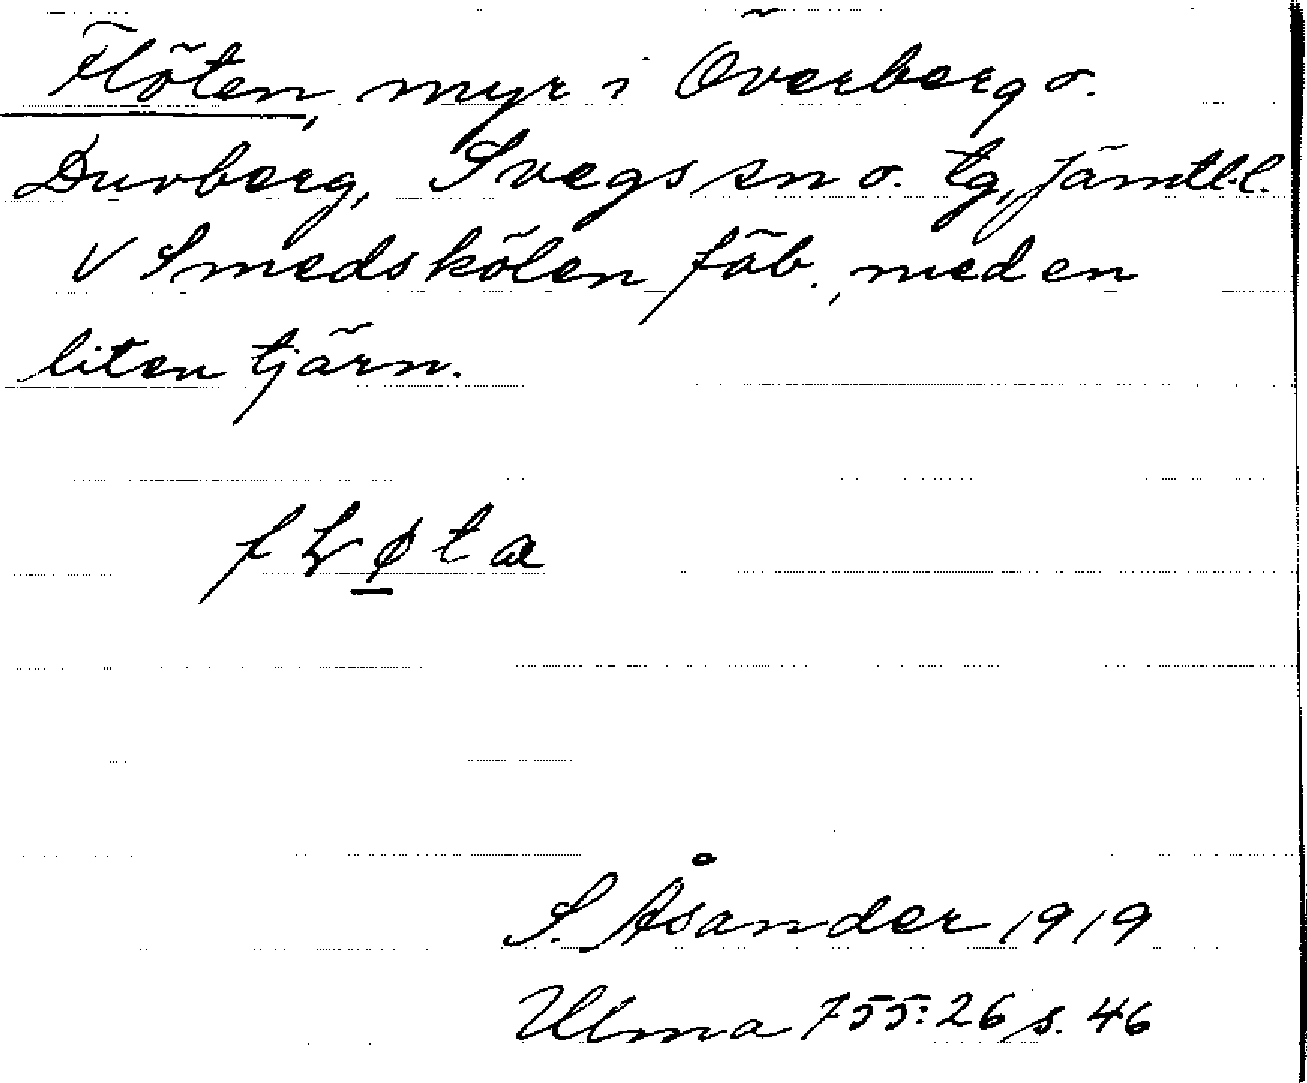 Flöten, myr i Överberg o.
Duvberg, Svegs sn o. tg, Jämtl. l.
V Smedskölen fäb., med en
liten tjärn.
S. Åsander 1919
Ulma 755:26 s. 46